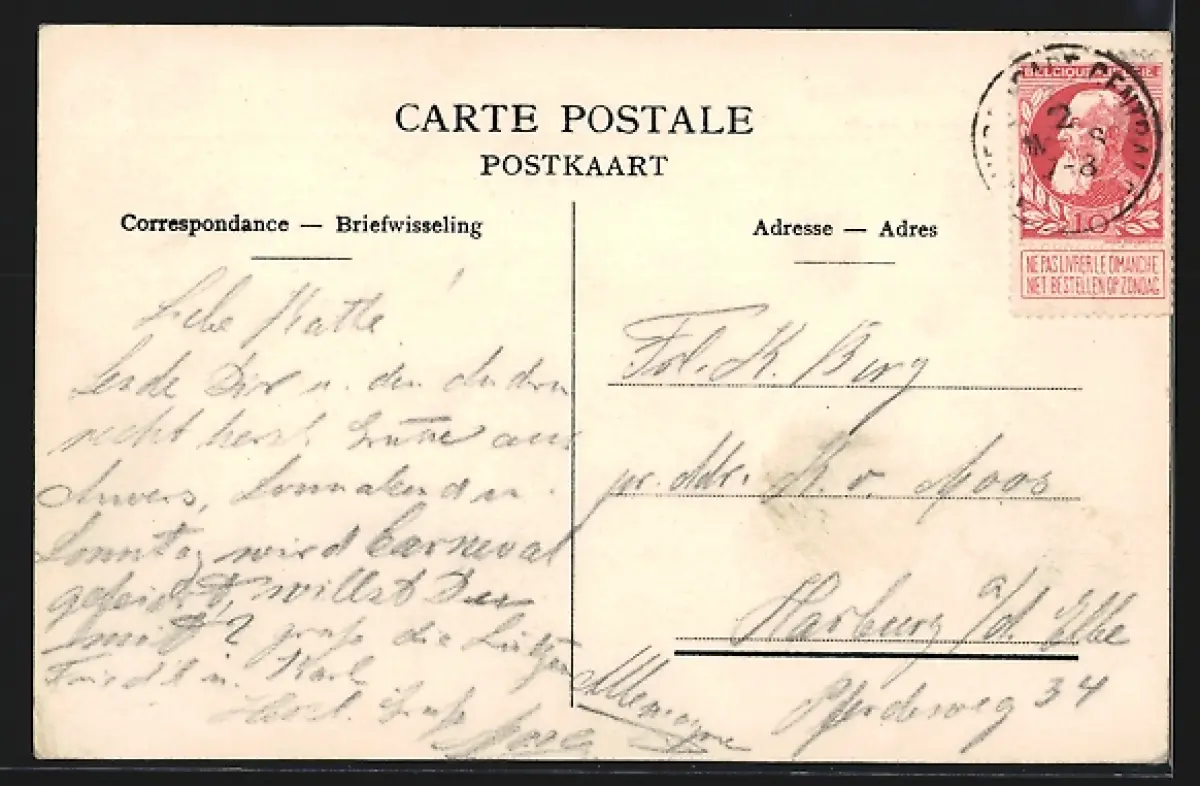 CARTE POSTALE
POSTKAART
Correspondance — Briefwisseling
Adresse — Adres
BELGIQUE
NE PAS LIVRER LE DIMANCHE
NIET BESTELLEN OP ZONDAG
2
7-8
10
Liebe Kätte!
Sende Dir u. den andren
recht herzl. Grüsse aus
Anvers, Sonnabend u.
Sonntag wird Carneval
gefeiert, willst Du
mit? grüß die
Friedl u. Karl
Herzl. Gruß
Frl. K. Berg
pr. Adr. H. v. Moos
Harburg a/d. Elbe
Pferdeweg 34
Allemagne